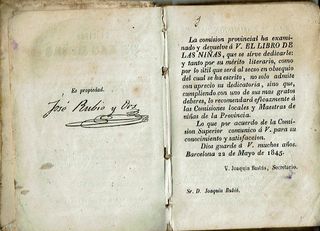 Es propiedad.
José Rubió y Ors
La comision provincial ha exami-
nado y devuelve á V. EL LIBRO DE
LAS NIÑAS, que se sirve dedicarle:
y tanto por su mérito literario, como
por lo útil que será al secso en obsequio
del cual se ha escrito, no solo admite
con aprecio su dedicatoria, sino que,
cumpliendo con uno de sus mas gratos
deberes, lo recomendará eficazmente á
las Comisiones locales y Maestras de
niñas de la Provincia.
Lo que por acuerdo de la Comi-
sion Superior comunico á V. para su
conocimiento y satisfaccion.
Dios guarde á V. muchos años.
Barcelona 22 de Mayo de 1845.
V. Joaquin Bastús, Secretario.
Sr. D. Joaquin Rubió.